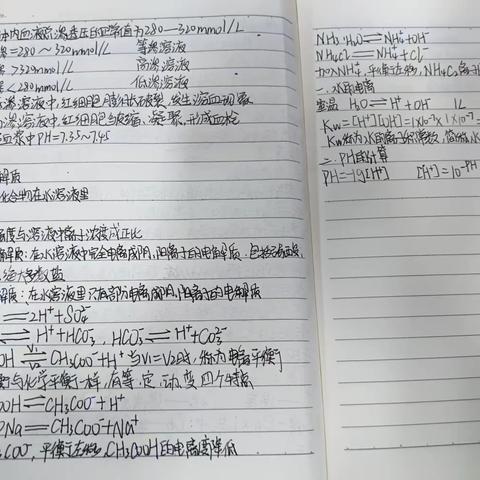 体内血液渗透压的正常值为280—320mmol/L
=280~320mmol/L 等渗溶液
>320mmol/L 高渗溶液
<280mmol/L 低渗溶液
渗溶液中,红细胞膨胀破裂,发生溶血现象
渗溶液中,红细胞皱缩、凝聚,形成血栓
血浆中PH=7.35~7.45
解质
化合物在水溶液里
强度与溶液中离子浓度成正比
解质:在水溶液中完全电离成阴、阳离子的电解质.包括强酸
绝大多数盐
解质:在水溶液里只有部分电离成阴、阳离子的电解质
=2H⁺+SO₄²⁻
⇌H⁺+HCO₃⁻, HCO₃⁻⇌H⁺+CO₃²⁻
OH⇌CH₃COO⁻+H⁺ 当V₁=V₂时,称为电离平衡
衡与化学平衡一样,有等、定、动、变四个特点
OOH⇌CH₃COO⁻+H⁺
ONa=CH₃COO⁻+Na⁺
COO⁻,平衡左移,CH₃COOH的电离度降低
NH₃·H₂O⇌NH₄⁺+OH⁻
NH₄Cl=NH₄⁺+Cl⁻
加入NH₄⁺,平衡左移,NH₄Cl
一.水的电离
室温 H₂O⇌H⁺+OH⁻ 1L
Kw=[H⁺][OH⁻]=1×10⁻⁷×1×10⁻⁷=
Kw称为水的离子积常数,简称水
二.PH的计算
PH=-lg[H⁺] [H⁺]=10⁻ᴾᴴ